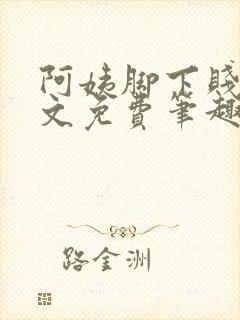 阿姨脚下贱
文免费笔趣
路金洲